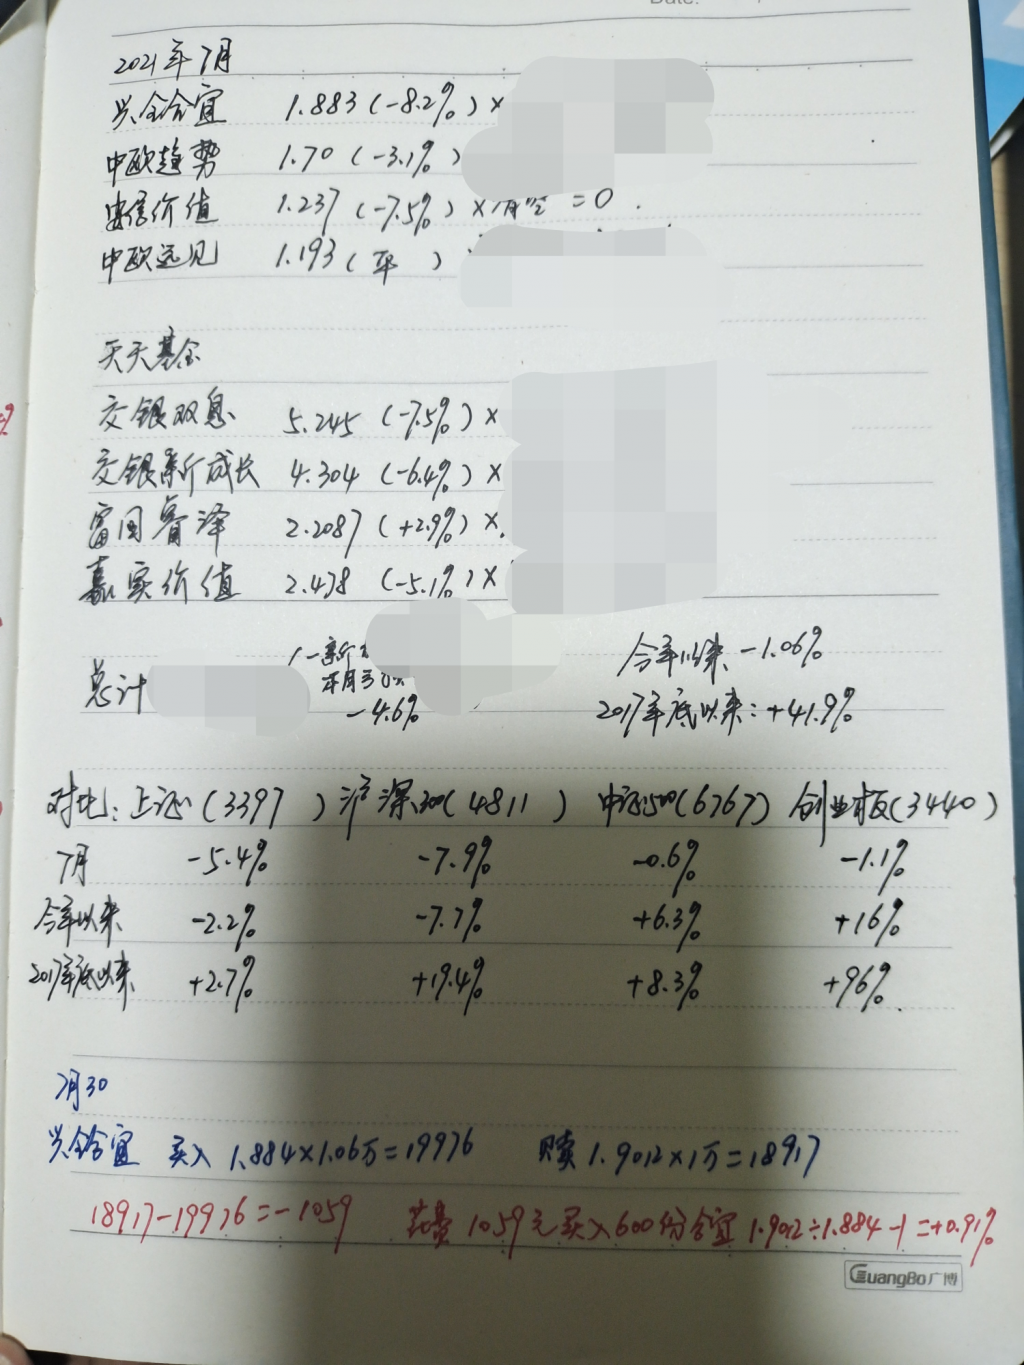 Date:
2021年7月
兴全合宜 1.883 (-8.2%) ×
中欧趋势 1.70 (-3.1%)
价值 1.237 (-7.5%) × 清空 = 0.
中欧远见 1.193 (平 )
天天基金
交银双息 5.245 (-7.5%) ×
交银新成长 4.304 (-6.4%) ×
富国睿泽 2.2087 (+2.9%) ×
嘉实价值 2.478 (-5.1%) ×
今年以来 -1.06%
总计 -4.6% 2017年底以来: +41.9%
对比: 上证 (3397 ) 沪深300 (4811 ) 中证500 (6767) 创业板 (3440)
7月 -5.4% -7.9% -0.6% -1.1%
今年以来 -2.2% -7.7% +6.3% +16%
2017年底以来 +2.7% +19.4% +8.3% +96%
7月30
兴全合宜 买入 1.884×1.06万=19976 赎 1.9012×1万=18917
18917-19976=-1059 花费 1059元买入600份合宜 1.9012÷1.884-1=+0.91%
GuangBo广博